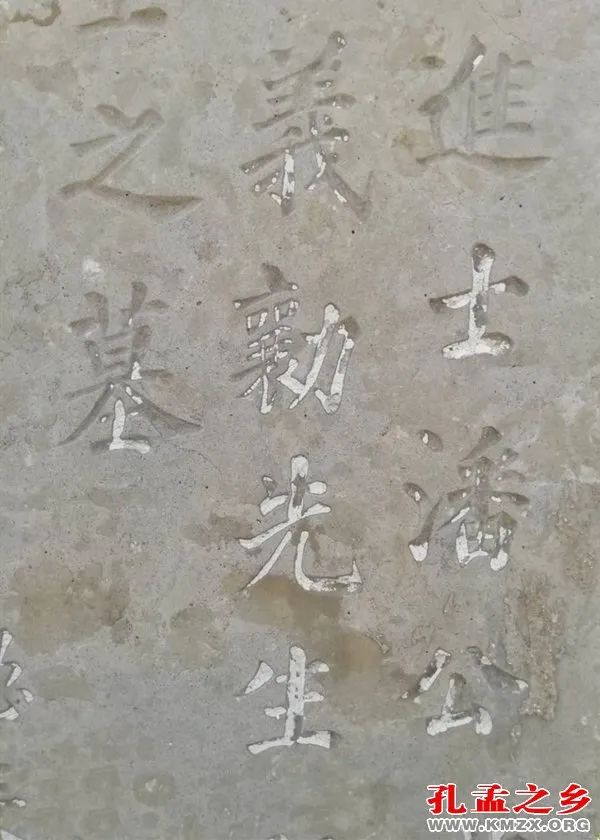 進士潘公
義勷先生
之墓
孔孟之乡
WWW.KMZX.ORG